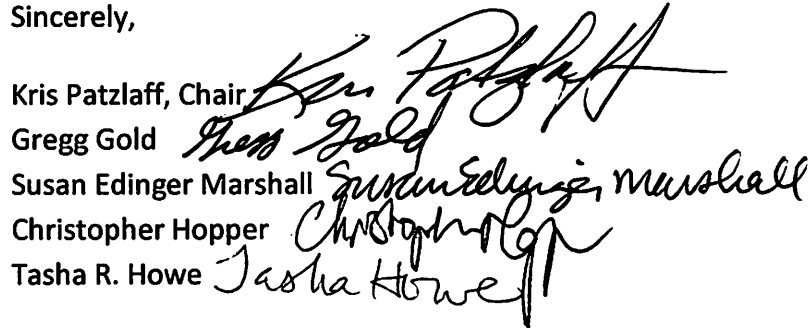 Sincerely,
Kris Patzlaff, Chair Kris Patzlaff
Gregg Gold Gregg Gold
Susan Edinger Marshall Susan Edinger Marshall
Christopher Hopper Christopher Hopper
Tasha R. Howe Tasha Howe